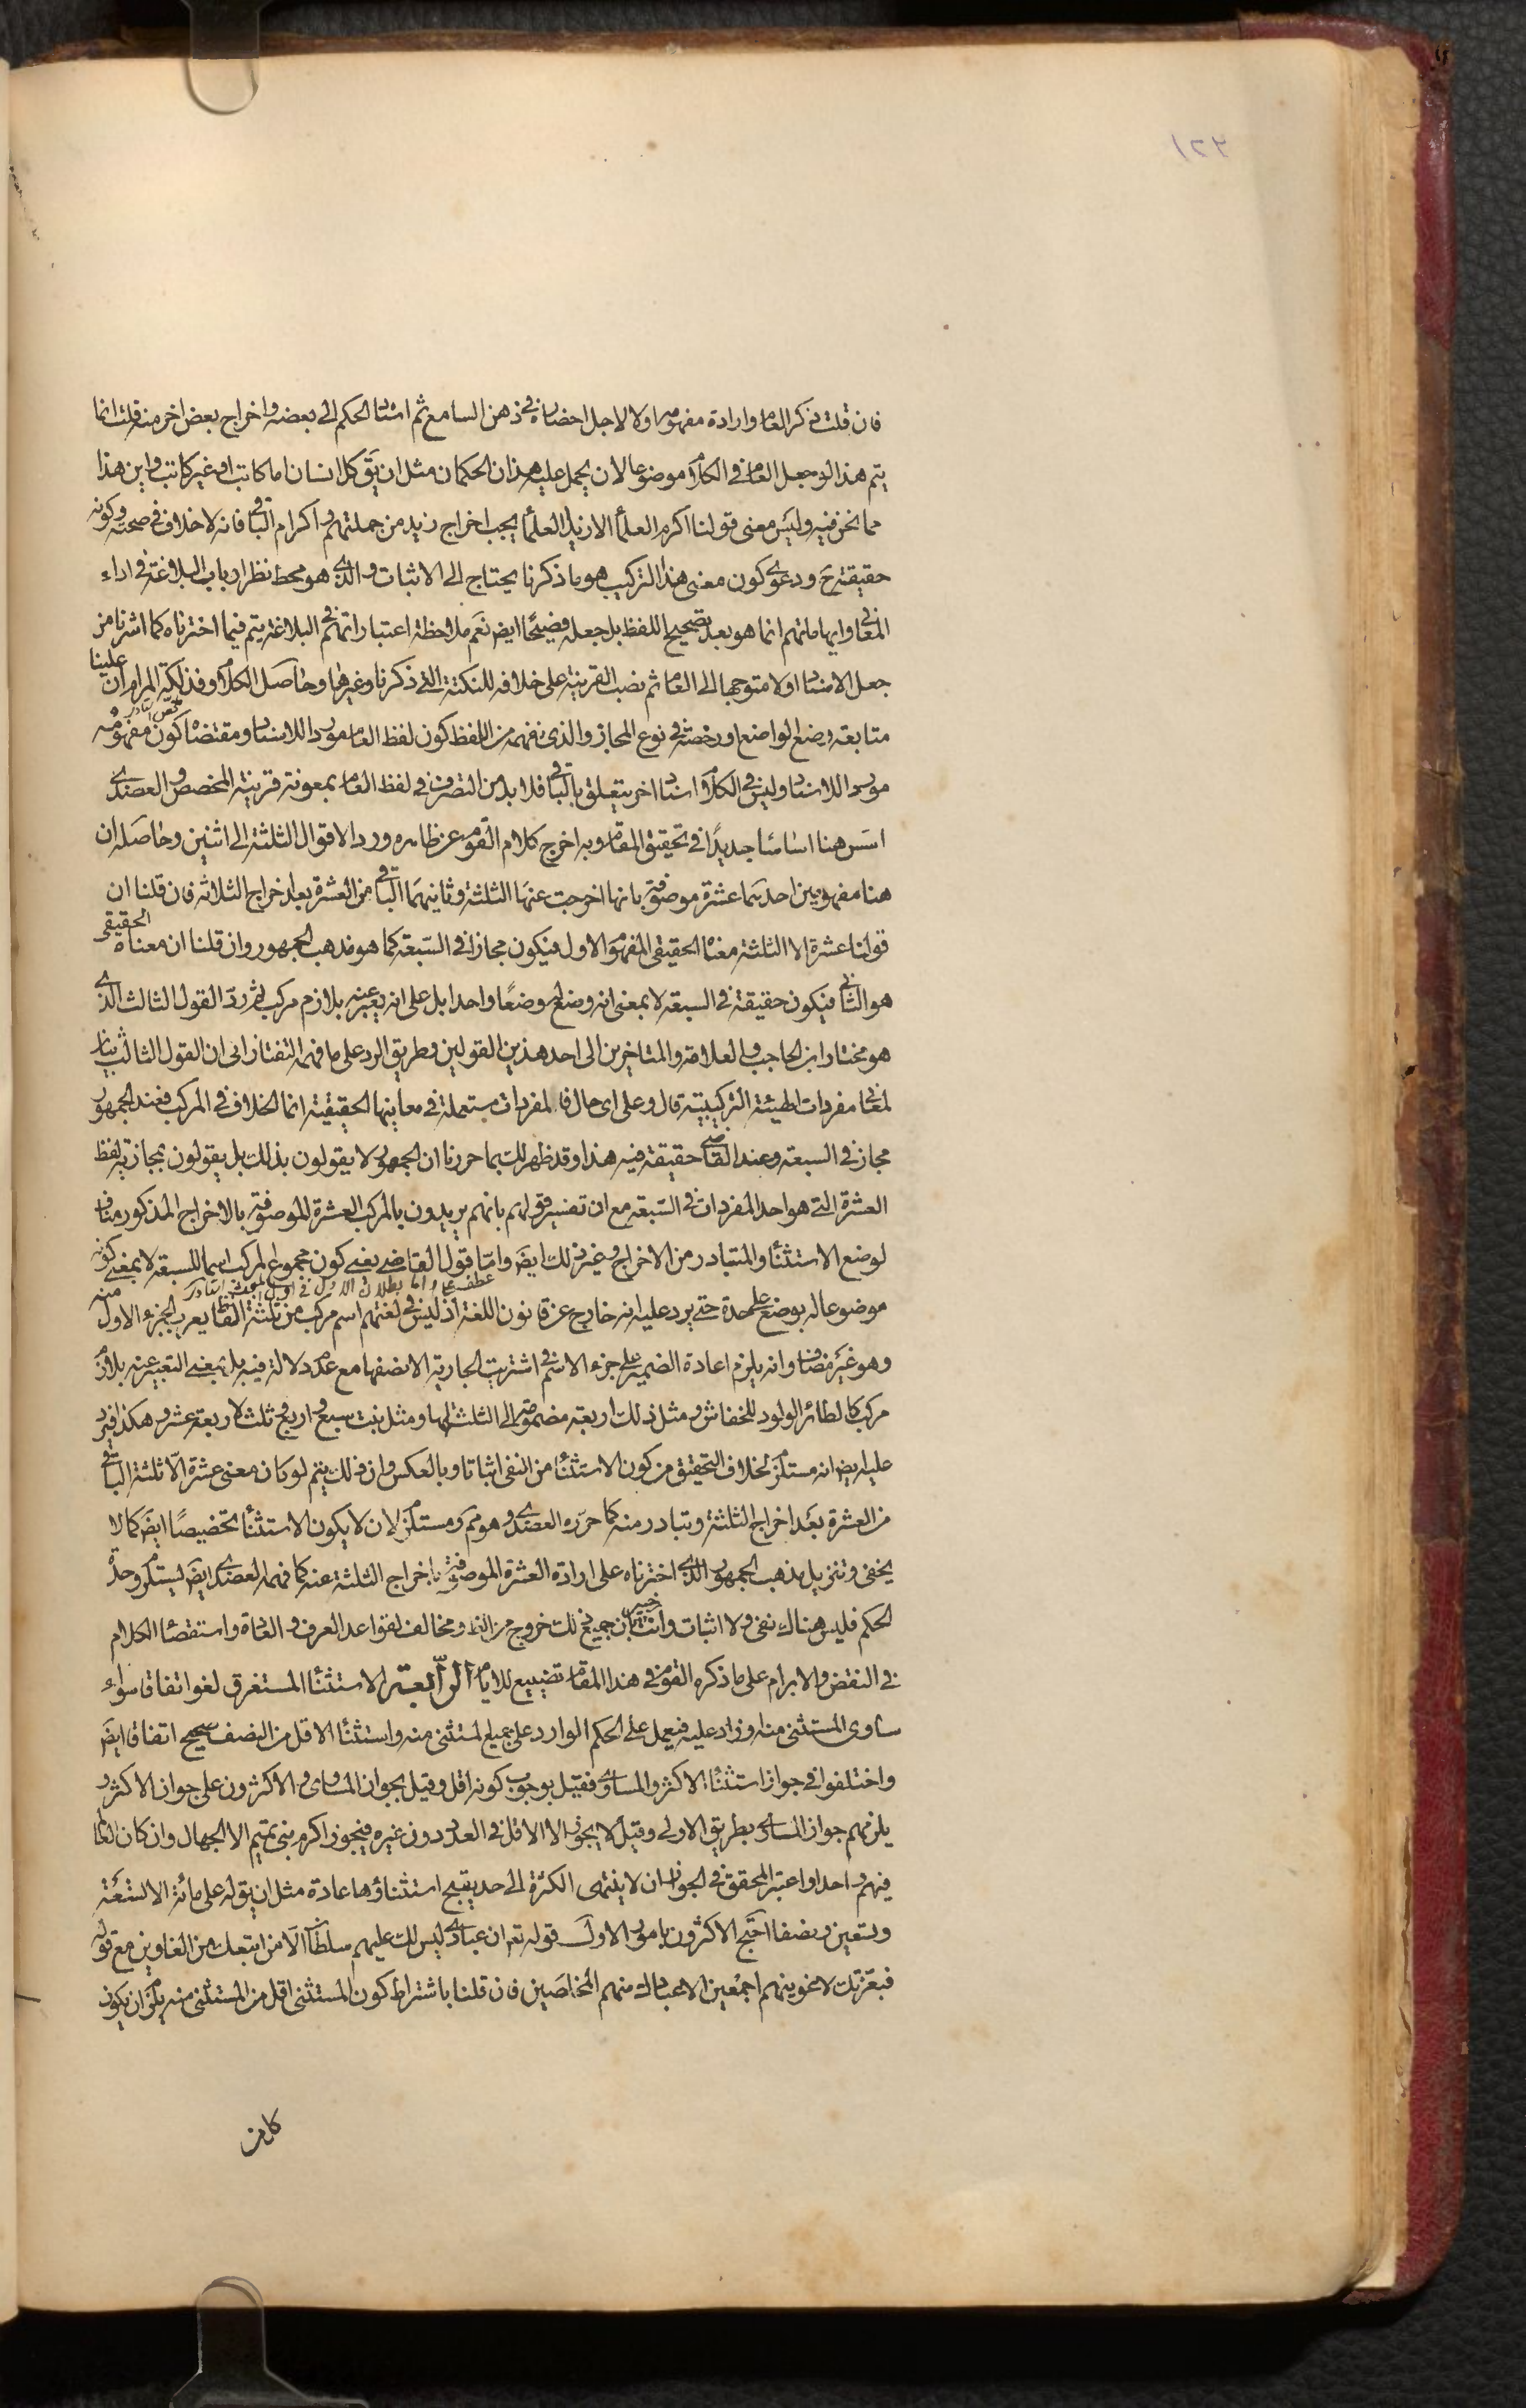 ١٢٢
فان قلت ذكر العام وارادة مفهومه اولا لاجل احضاره في ذهن السامع ثم اسناد الحكم الى بعضه واخراج بعض اخر منه قلت انما
يتم هذا لو جعل العام في الكلام موضوعا لان يحمل عليه هذان الحكمان مثل ان يق كل انسان اما كاتب او غير كاتب واين هذا
مما نحن فيه وليس معنى قولنا اكرم العلماء الا زيد العلماء يجب اخراج زيد من جملتهم واكرام الباقي فانه لا خلاف في صحته وكونه
حقيقة ح ودعوى كون معنى هذا التركيب هو ما ذكرنا يحتاج الى الاثبات والذي هو محط نظر ارباب البلاغة في اداء
المعاني وايهاماتهم انما هو بعد تصحيح اللفظ بل جعله فصيحا ايض نعم ملاحظة اعتباراتهم في البلاغة يتم فيما اخترناه كما اشرنا من
جعل الاسناد اولا متوجها الى العام ثم نصب القرينة على خلافه للنكتة التي ذكرنا وغيرها وحاصل الكلام وفذلكة المرام ان علينا
متابعة وضع الواضع او رخصته في نوع المجاز والذي نفهمه من اللفظ كون لفظ العام موردا للاسناد ومقتضاه كون مفهومه
موردا للاسناد وليس في الكلام اسناد اخر يتعلق بالباقي فلا بد من التصرف في لفظ العام بمعونة قرينة المخصص والعضدي
اسس هنا اساسا جديدا في تحقيق المقام وبه اخرج كلام القوم عن ظاهره ورد الاقوال الثلثة الى اثنين وحاصله ان
هنا مفهومين احدهما عشرة موصوفة بانها اخرجت عنها الثلثة وثانيهما الباقي من العشرة بعد اخراج الثلاثه فان قلنا ان
قولنا عشرة الا الثلثة معناه الحقيقي المفهوم الاول فيكون مجازا في السبعة كما هو مذهب الجمهور وان قلنا ان معناه الحقيقي
هو الثاني فيكون حقيقة في السبعة لا بمعنى انه وضع له وضعا واحدا بل على انه يعبر عنه بلازم مركب ثم رد القول الثالث الذي
هو مختار ابن الحاجب والعلامة والمتاخرين الى احد هذين القولين وطريق الرد على ما فهمه التفتازاني ان القول الثالث بيان
لمعاني مفردات الهيئة التركيبية قال وعلى اى حال فالمفردات مستعملة في معاينها الحقيقية انما الخلاف في المركب فعند الجمهور
مجاز في السبعة وعند القاضي حقيقة فيه هذا وقد ظهر لك بما حررنا ان الجمهور لا يقولون بذلك بل يقولون بمجازية لفظ
العشرة التي هو احد المفردات في السبعة مع ان تفسير قولهم بانهم يريدون بالمركب العشرة الموصوفة بالاخراج المذكور مناف
لوضع الاستثناء والمتبادر من الاخراج وغير ذلك ايض واما قول القاضي يعني كون مجموع المركب اسما للسبعة لا بمعنى كونه
موضوعا له بوضع على حدة حتى يرد عليه انه خارج عن قانون اللغة اذ ليس في لغتهم اسم مركب من ثلثة الفاظ يعرب الجزء الاول منه
وهو غير مضاف وانه يلزم اعادة الضمير على جزء الاسم في اشتريت الجارية الا نصفها مع عدم دلالة فيه بل بمعنى التعبير عنه بلازم
مركب كالطائر الولود للخفاش ومثل ذلك اربعة مضمومة الى الثلث لها ومثل بنت سبع واربع وثلث لاربعة عشر وهكذا فيرد
عليه ايض انه مستلزم لخلاف التحقيق من كون الاستثناء من النفي اثباتا وبالعكس وان ذلك يتم لو كان معنى عشرة الا ثلثة الباقي
من العشرة بعد اخراج الثلثة وتبادر منه كما حرره العضدي وهو مم ومستلزم لان لا يكون الاستثناء تخصيصا ايض كما لا
يخفى وتنزيل مذهب الجمهور الذي اخترناه على ارادة العشرة الموصوفة باخراج الثلثة عنه كما فهمه العضدي ايض ليستلزم وحدة
الحكم فليس هناك نفي ولا اثبات وانت خبير بان جميع ذلك خروج من الظ ومخالف لقواعد العرف والعادة واستقصاء الكلام
في النقض والابرام على ما ذكره القوم في هذا المقام تضييع للايام الرابعة الاستثناء المستغرق لغو اتفاقا سواء
ساوى المستثنى منه او زاد عليه فيعمل على الحكم الوارد على جميع المستثنى منه واستثناء الاقل من النصف صحيح اتفاقا ايض
واختلفوا في جواز استثناء الاكثر والمساوي فقيل بوجوب كونه اقل وقيل بجواز المساوي والاكثرون على جواز الاكثر و
يلزمهم جواز المساوي بطريق الاولى وقيل لا يجوز الا الاقل في العدد دون غيره فيجوز اكرم بني تميم الا الجهال وان كان العالم
فيهم واحدا واعتبر المحقق في الجواز ان لا ينتهى الكثرة الى حد يقبح استثناؤها عادة مثل ان يق له على مائة الا تسعة
وتسعين ونصفا احتج الاكثرون بامور الاول قوله تعم ان عبادي ليس لك عليهم سلطان الا من اتبعك من الغاوين مع قوله
فبعزتك لاغوينهم اجمعين الا عبادك منهم المخلصين فان قلنا باشتراط كون المستثنى اقل من المستثنى منه يلزم ان يكون
كل من